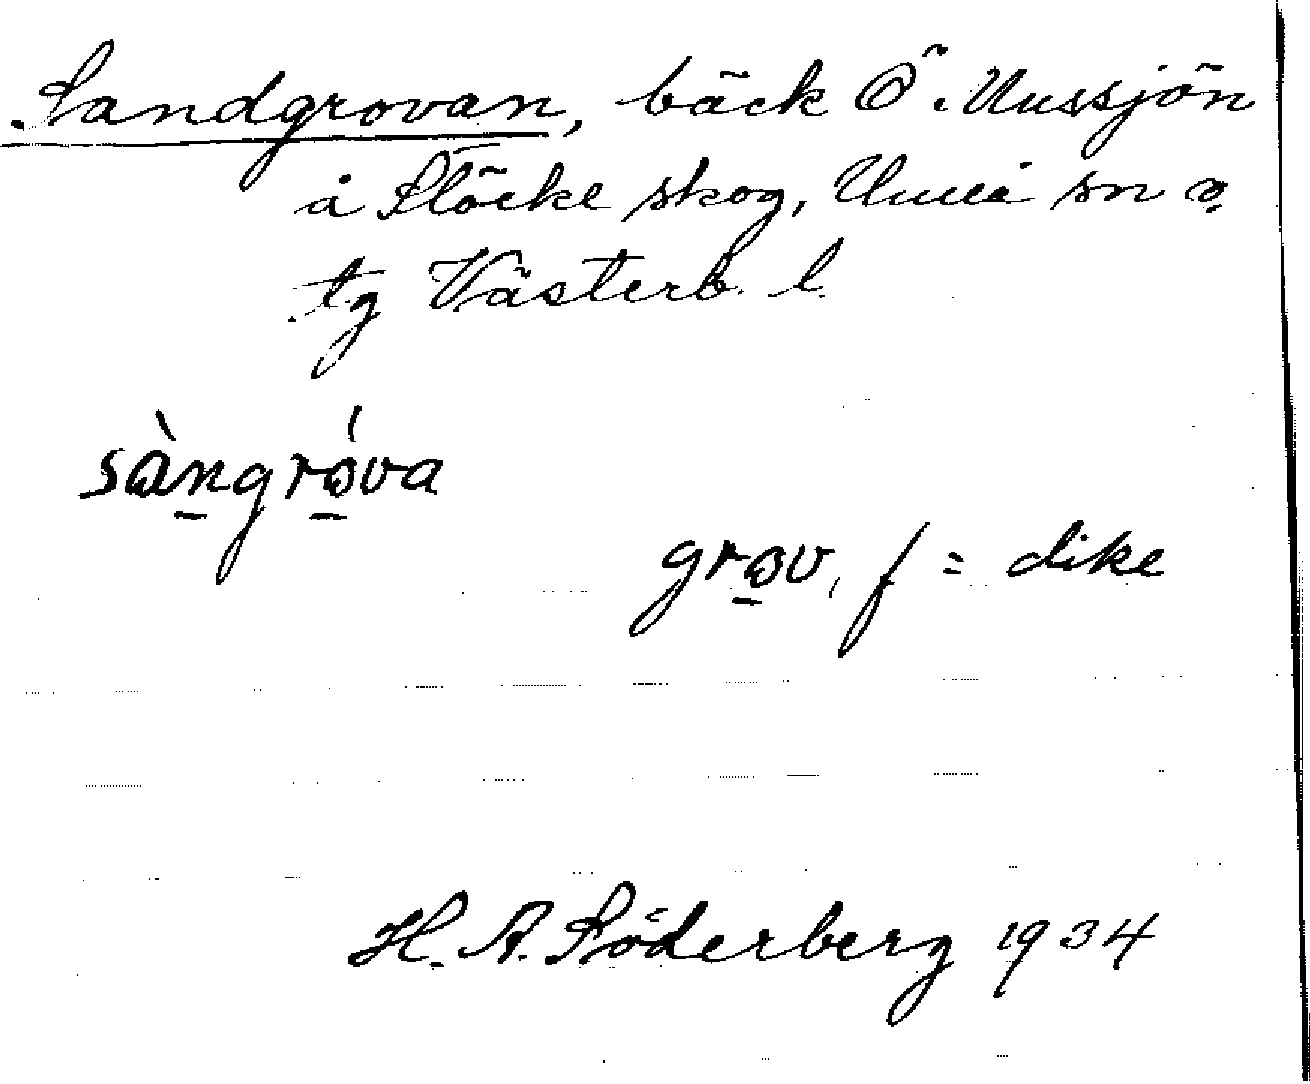 Sandgrovan, bäck Ö. Mussjön
å Stöcke skog, Umeå sn o.
tg Västerb. l.
sàngróva
grov, f = dike
H. A. Söderberg 1934